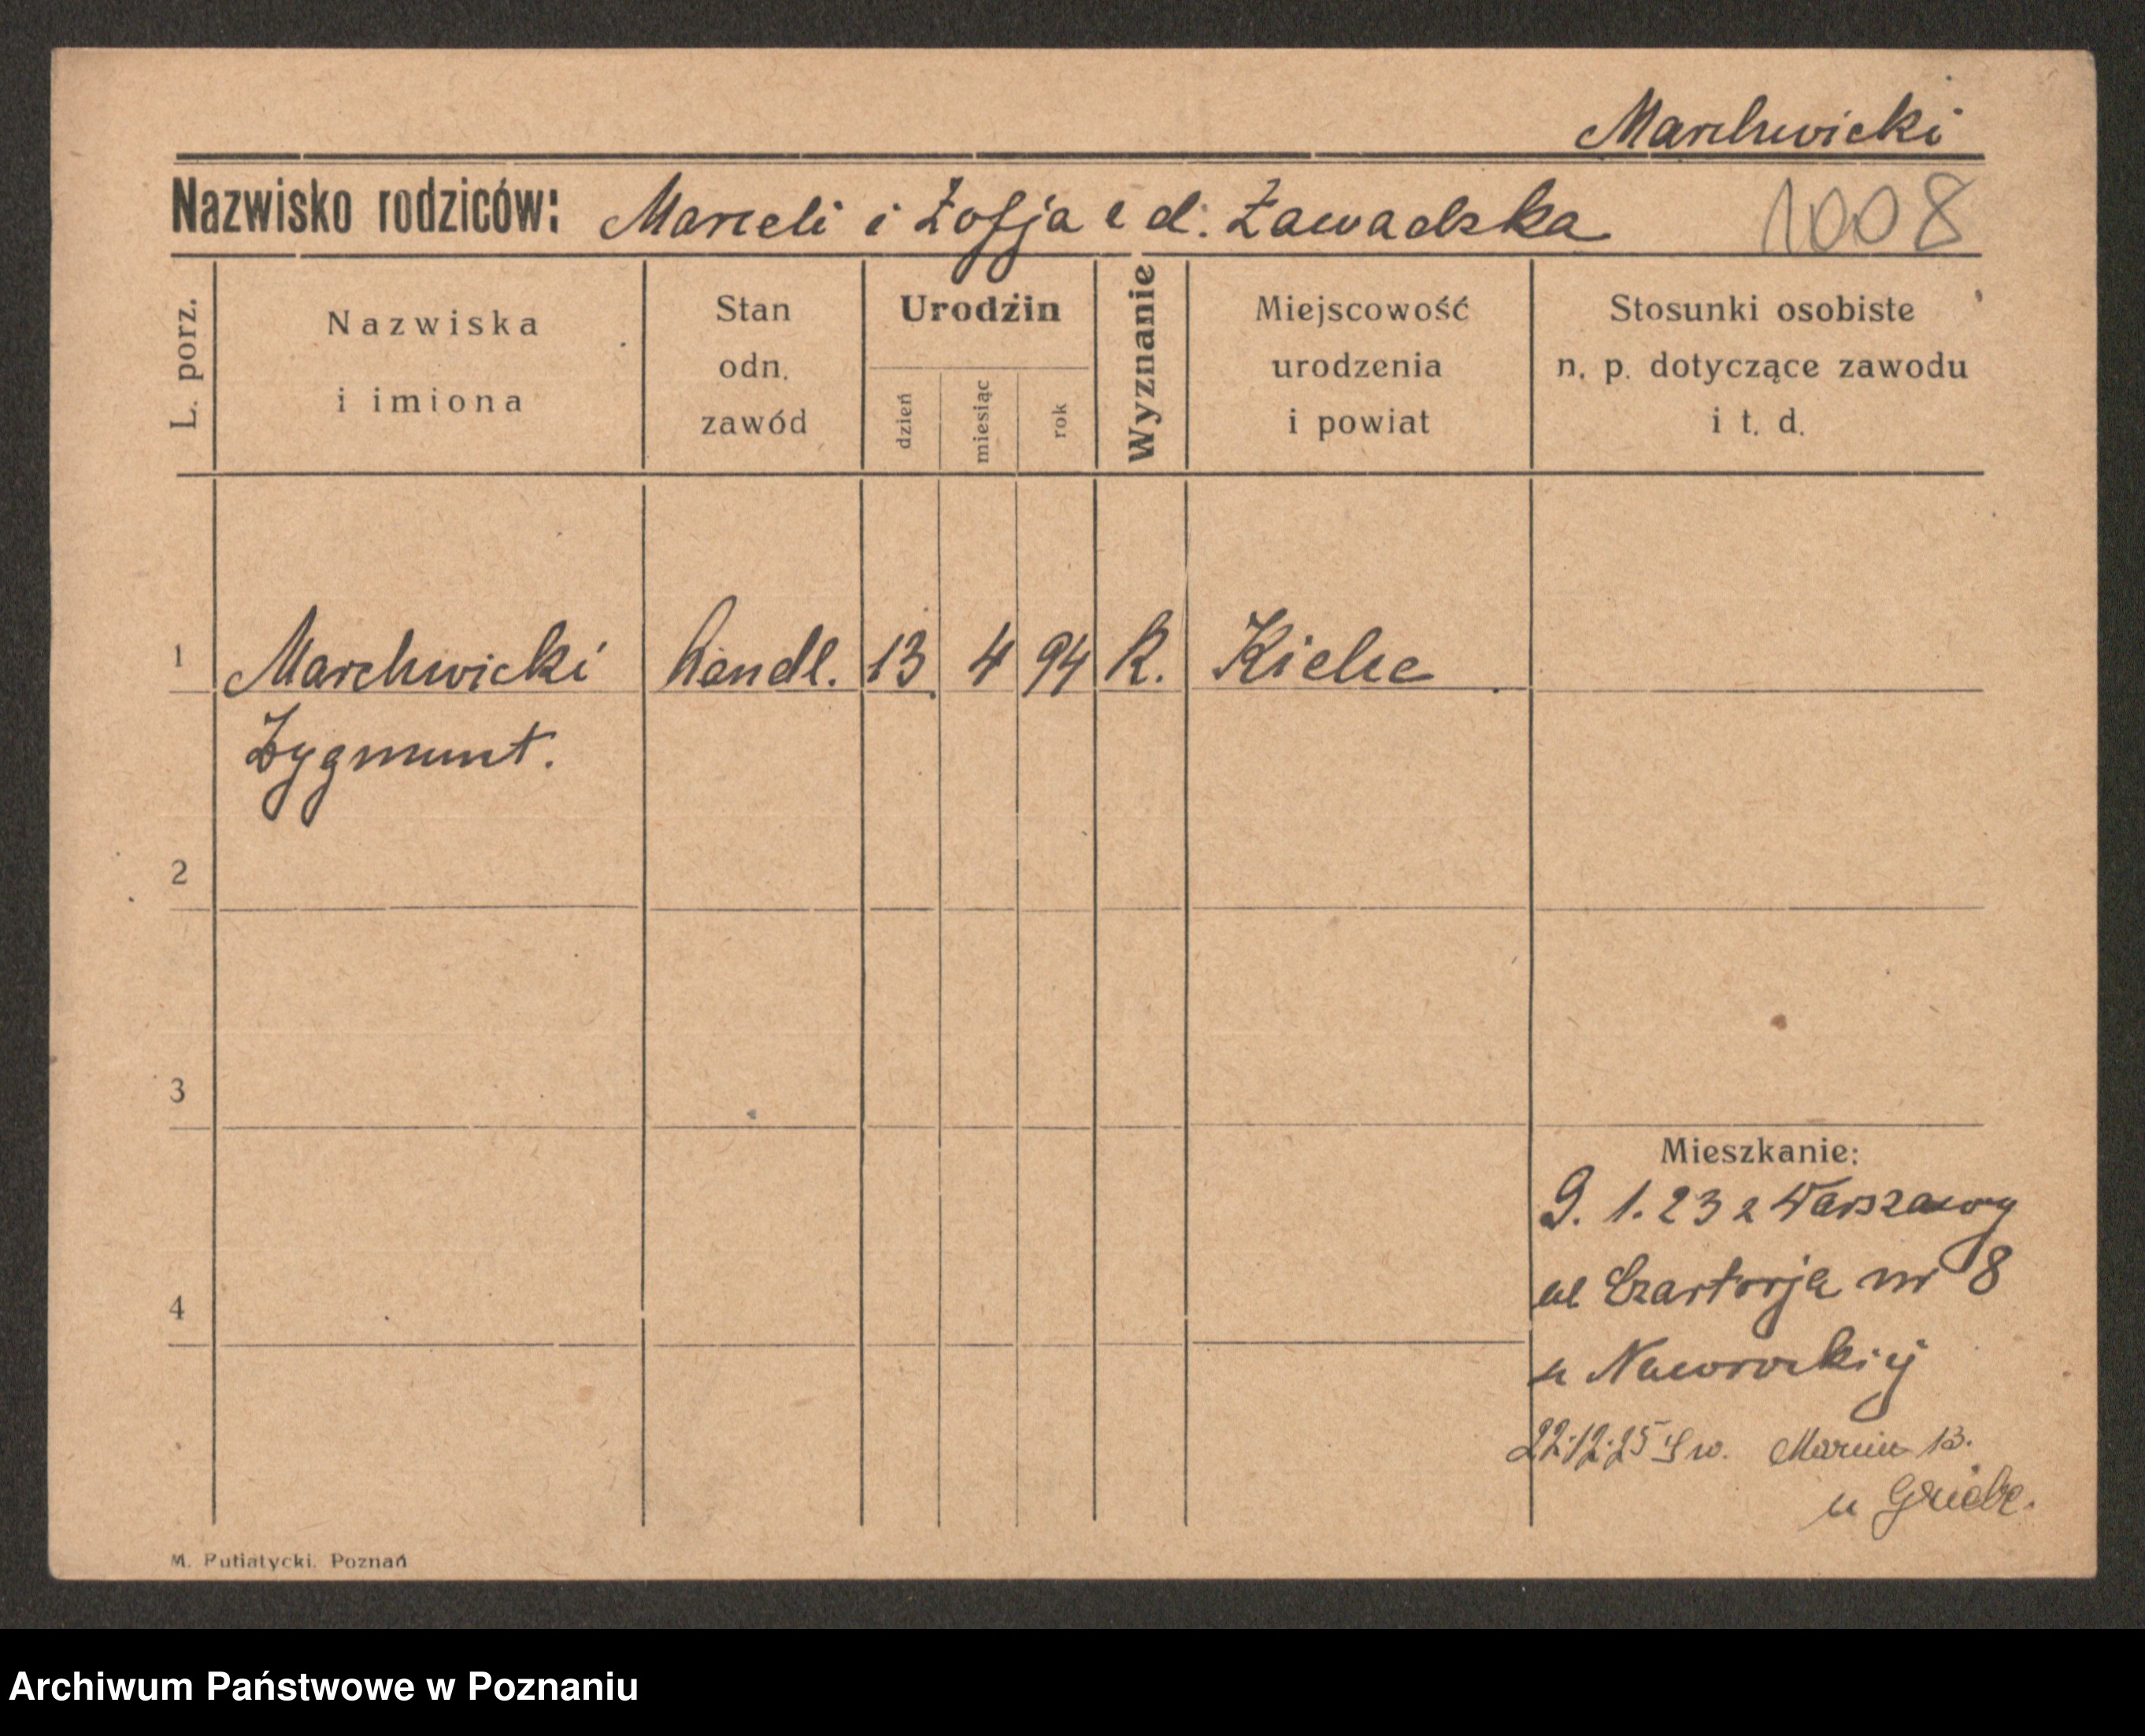 Marchwicki
Nazwisko rodziców: Marceli i Zofja z d. Zawadzka 1008
L. porz.
Nazwiska
i imiona
Stan
odn.
zawód
Urodzin
dzień
miesiąc
rok
Wyznanie
Miejscowość
urodzenia
i powiat
Stosunki osobiste
n. p. dotyczące zawodu
i t. d.
1 Marchwicki handl. 13 4 94 K. Kielce
Zygmunt.
2
3
Mieszkanie:
9. 1. 23 z Warszawy
ul Czartorja nr 8
4
u Nawrockiej
22.12.25 Św. Marcin 13.
u
M. Putiatycki. Poznań
Archiwum Państwowe w Poznaniu